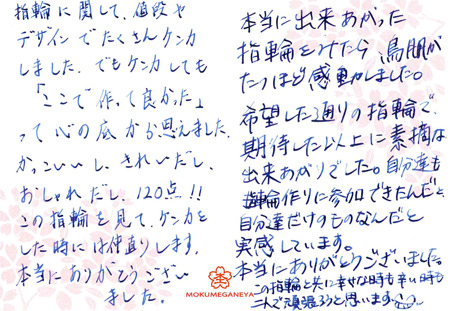 指輪に関して、値段や
デザインでたくさんケンカ
しました。でもケンカしても
「ここで作って良かった」
って心の底から思えました。
かっこいいし、きれいだし、
おしゃれだし、120点!!
この指輪を見て、ケンカを
した時には仲直りします。
本当にありがとうござい
ました。
本当に出来あがった
指輪をみたら、鳥肌が
たつほど感動しました。
希望した通りの指輪で、
期待した以上に素敵な
出来あがりでした。自分達も
指輪作りに参加できたんだと、
自分達だけのものなんだと
実感しています。
本当にありがとうございました。
この指輪と共に幸せな時も辛い時も
二人で頑張ろうと思います
MOKUMEGANEYA